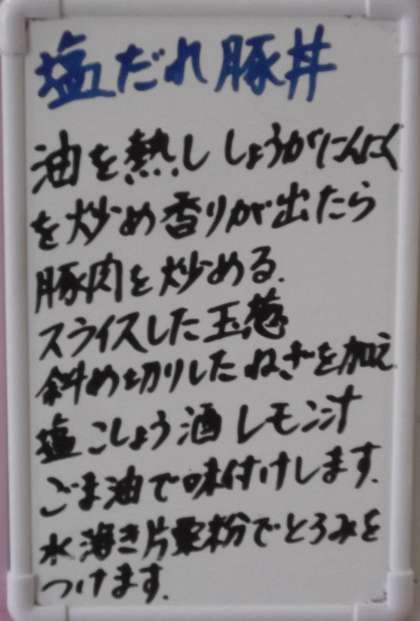 塩だれ豚丼
油を熱ししょうがにんにく
を炒め香りが出たら
豚肉を炒める.
スライスした玉葱
斜め切りしたねぎを加え
塩こしょう酒レモン汁
ごま油で味付けします.
水溶き片栗粉でとろみを
つけます.